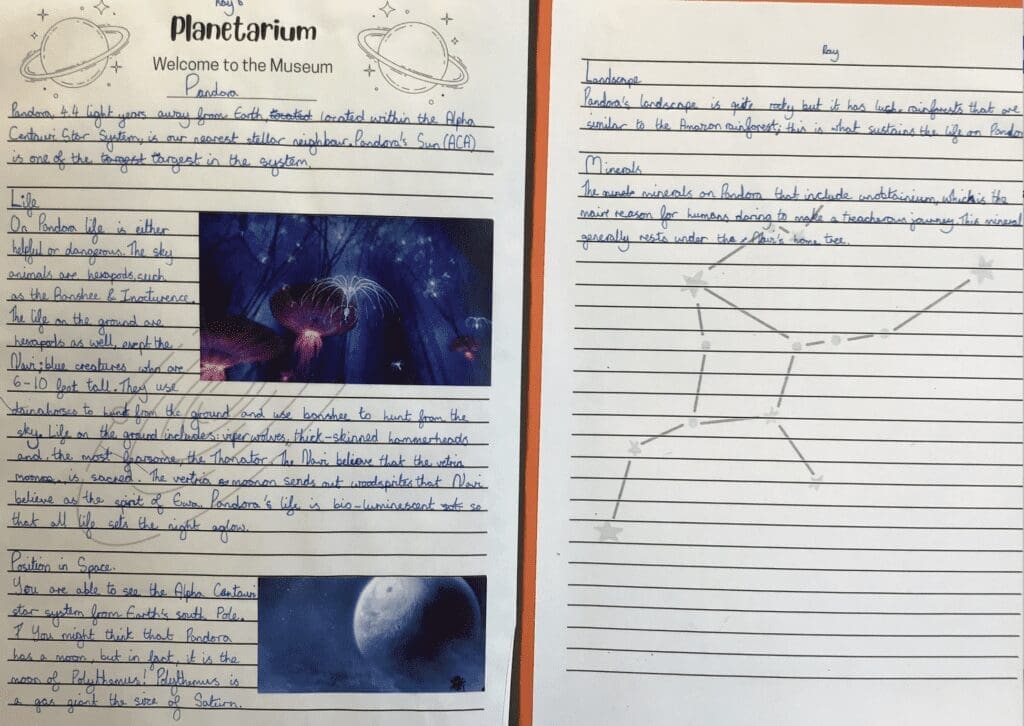 Ray
Planetarium
Welcome to the Museum
Pandora
Pandora, 4.4 light years away from Earth, located located within the Alpha
Centauri Star System, is our nearest stellar neighbour. Pandora's Sun (ACA)
is one of the largest largest in the system.
Life
On Pandora life is either
helpful or dangerous. The sky
animals are hexapods, such
as the Banshee &
The life on the ground are
hexapods as well, exept the
Navi; blue creatures who are
6-10 foot tall. They use
to hunt from the ground and use banshee to hunt from the
sky. Life on the ground includes: viperwolves, thick-skinned hammerheads
and, the most fearsome, the Thanator. The Navi believe that the
is sacred. The sends out woodsprites that Navi
believe as the spirit of Ewa. Pandora's life is bio-luminescent so
that all life sets the night aglow.
Position in Space.
You are able to see the Alpha Centauri
star system from Earth's south Pole.
You might think that Pandora
has a moon, but in fact, it is the
moon of Polythemus! Polythemus is
a gas giant the size of Saturn.
Ray
Landscape
Pandora's landscape is quite rocky but it has rainforests that are
similar to the Amazon rainforest; this is what sustains the life on Pandora
Minerals
The minerals on Pandora that include unobtainium, which is the
main reason for humans daring to make a treacherous journey. This mineral
generally rests under the Navi's home tree.